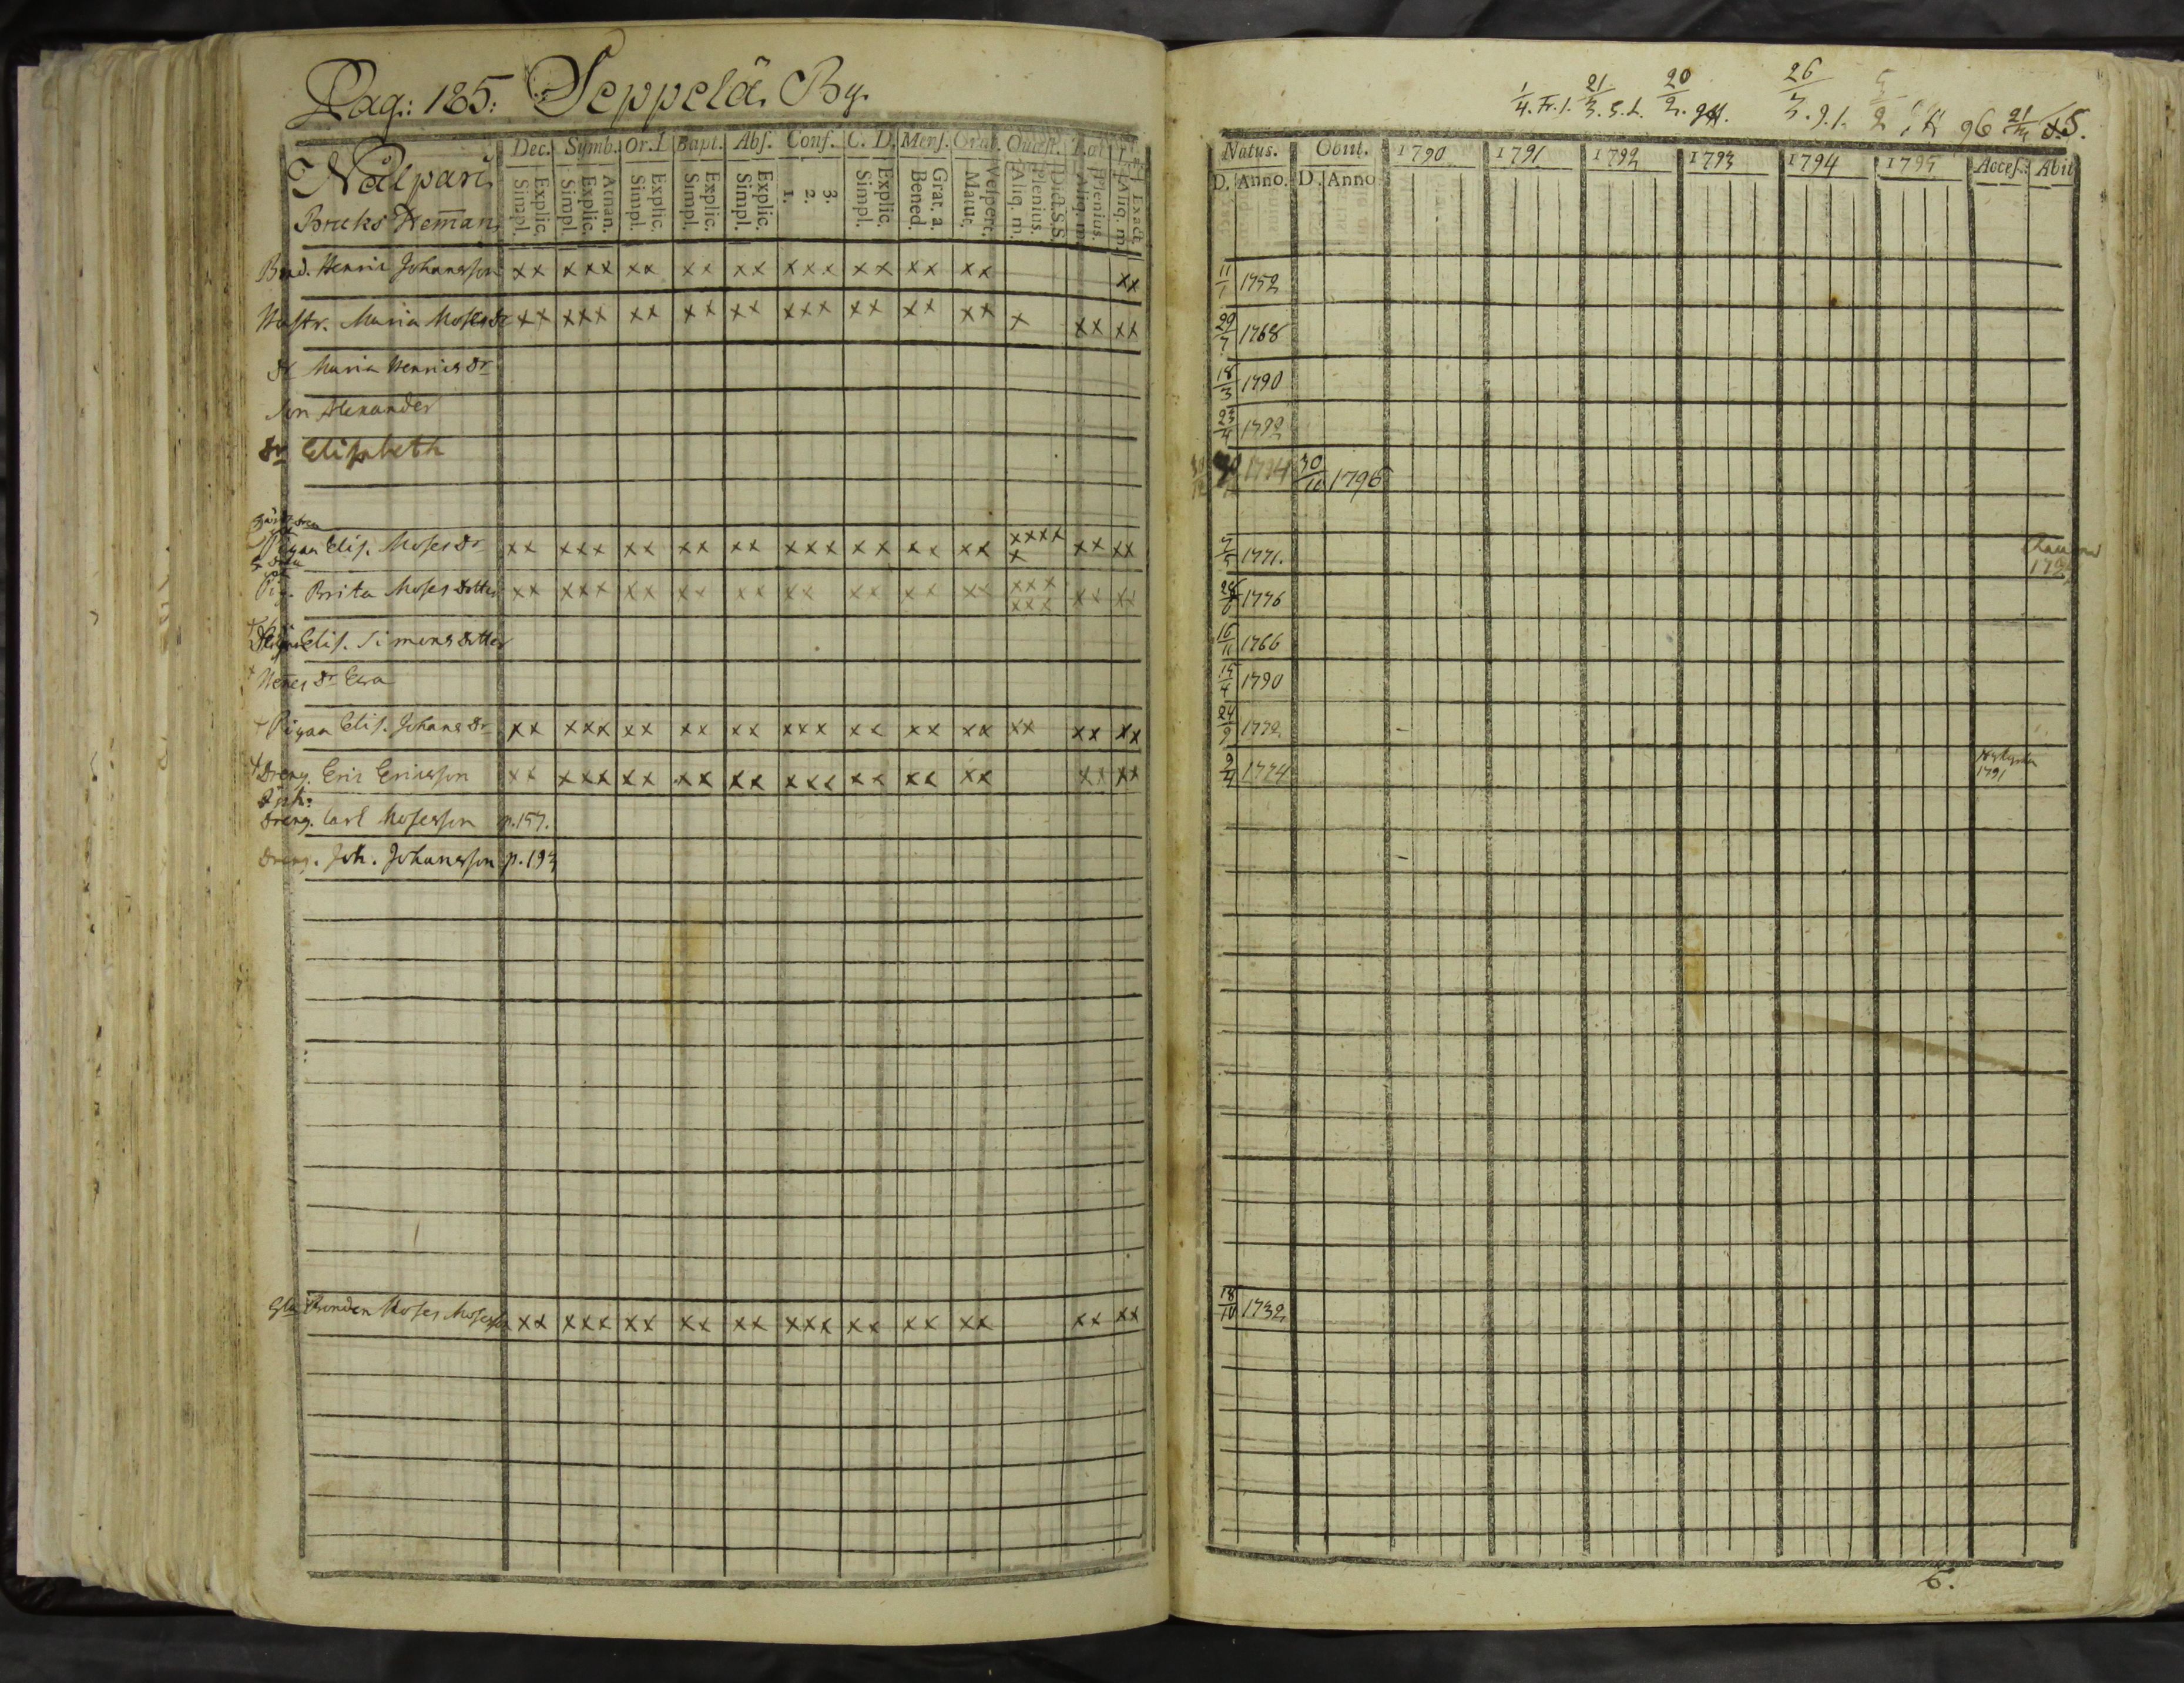 Pag: 185: Seppelä By.
Nalpari
Dec. Symb. Or. I Bapt. Abs. Conf. C. D. Mens. Orat. Quæst.
Explic. Simpl. Athan. Explic. Simpl. Explic. Simpl. Explic. Simpl. Explic. Simpl. 3. 2. 1. Explic. Simpl. Grat. a. Bened. Vespert. Matut. Dict. S.S. Plenius. Aliq. m. Plenius. Aliq. m. Exact. Aliq. m.
Bond. Henric Johansson xx xxx xx xx xx xxx xx xx xx xx
Hustr. Maria Moses dr xx xxx xx xx xx xxx xx xx xx x xx xx
dr Maria Henrics dr
Son Alexander
dr Elisabeth
Pigan Elis. Moses dr xx xxx xx xx xx xxx xx xx xx xxxx x xx xx
Pig. Brita Moses dotter xx xxx xx xx xx xx xx xx xx xxx xxx xx xx
Elis. Simons dotter
Henes dr Eva
Pigan Elis. Johans dr xx xxx xx xx xx xxx xx xx xx xx xx xx
Dreng. Eric Ericsson xx xxx xx xx xx xxx xx xx xx xx xx
Dreng. Carl Mosesson p. 157.
Dreng. Joh. Johansson p. 193
Bonden Moses Mosesson xx xxx xx xx xx xxx xx xx xx xx xx
1/4. Fr. 1. 21/3. 20/2. 26/3. 9. 1. 96 21
Natus. Obiit. 1790 1791 1792 1793 1794 1795 Acces.: Abit
D. Anno. D. Anno
11/1 1752
29/7 1768
18/3 1790
23/4 1792
1794 30/11 1796
1771.
1776
16/11 1766
15/4 1790
24/9 1772
9/4 1774
1791
18/10 1732
6.